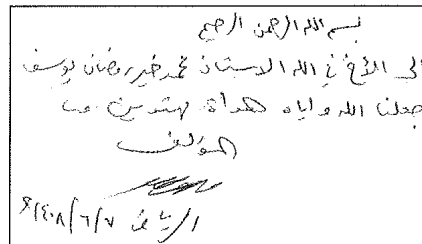 بسم الله الرحمن الرحيم
الى الأخ في الله الاستاذ محمد خير رمضان يوسف
جعلنا الله واياه هداة مهتدين
المؤلف
الرياض ١٤٠٨/٦/٧